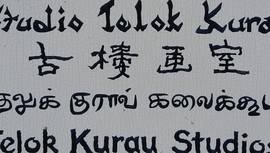 Studio Telok Kura
古樓画室
தலுக் குராவ் கலைக்கூ
Telok Kurau Studios